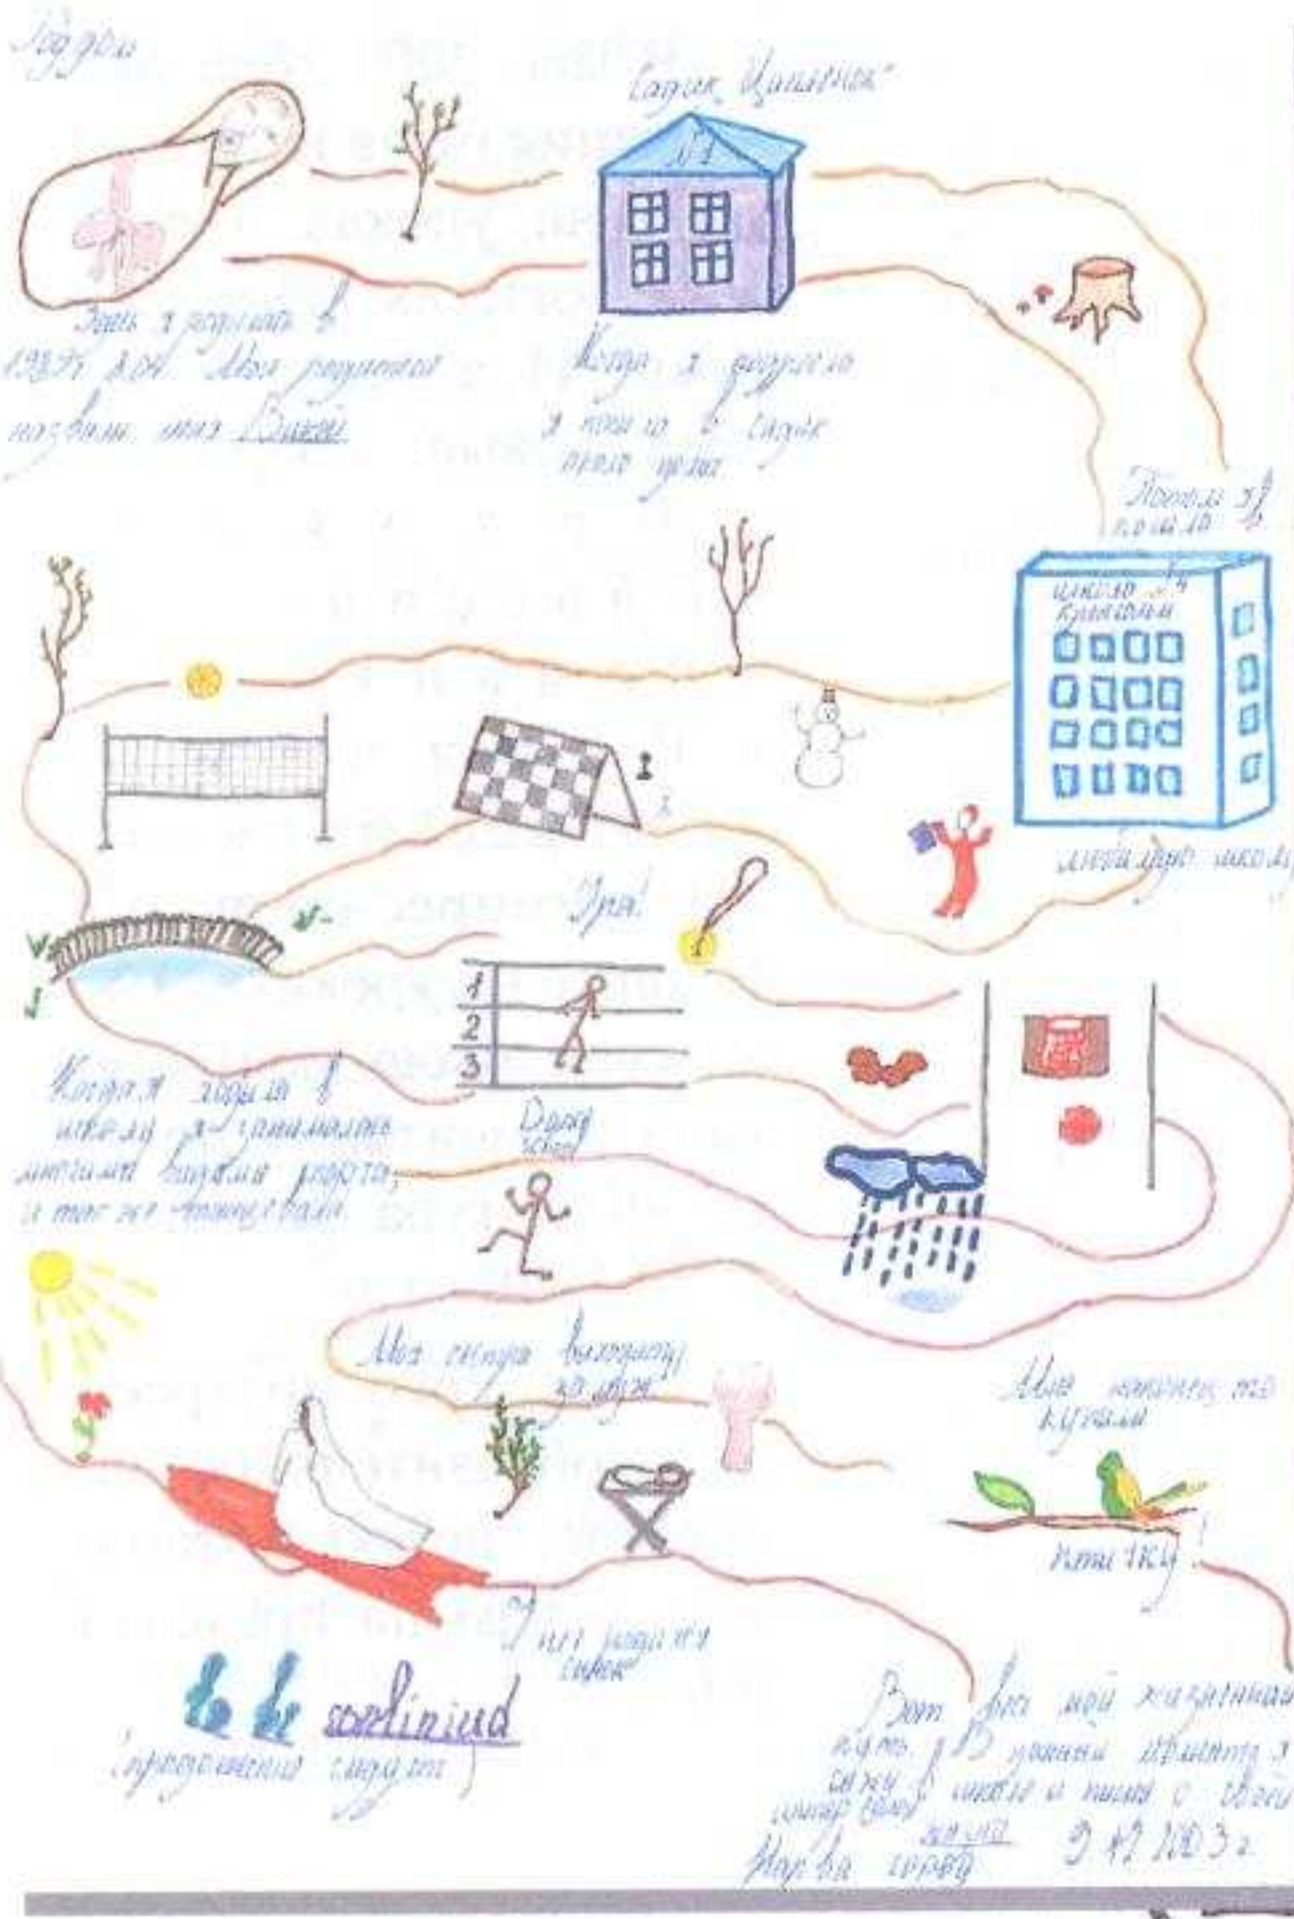 Роддом
Садик "Цыпленок"
№1
Здесь я родилась в
1989г. Мои родители
назвали меня Викой
Когда я подросла
я пошла в садик
около дома.
Потом я
пошла в
школа №4
Кренгольм
любимую школу
Ура!
1
1
2
3
Когда я ходила в
школу я занималась
многими видами спорта,
и так же танцевала.
Dance
School
Моя сестра выходит
замуж
Мне наконец то
купили
птичку!
родился
сынок
sooliniud
(продолжение следует)
Вот весь мой жизненный
путь. В данный момент я
сижу в школе и пишу о своей
Нарва город
зима
2003 г